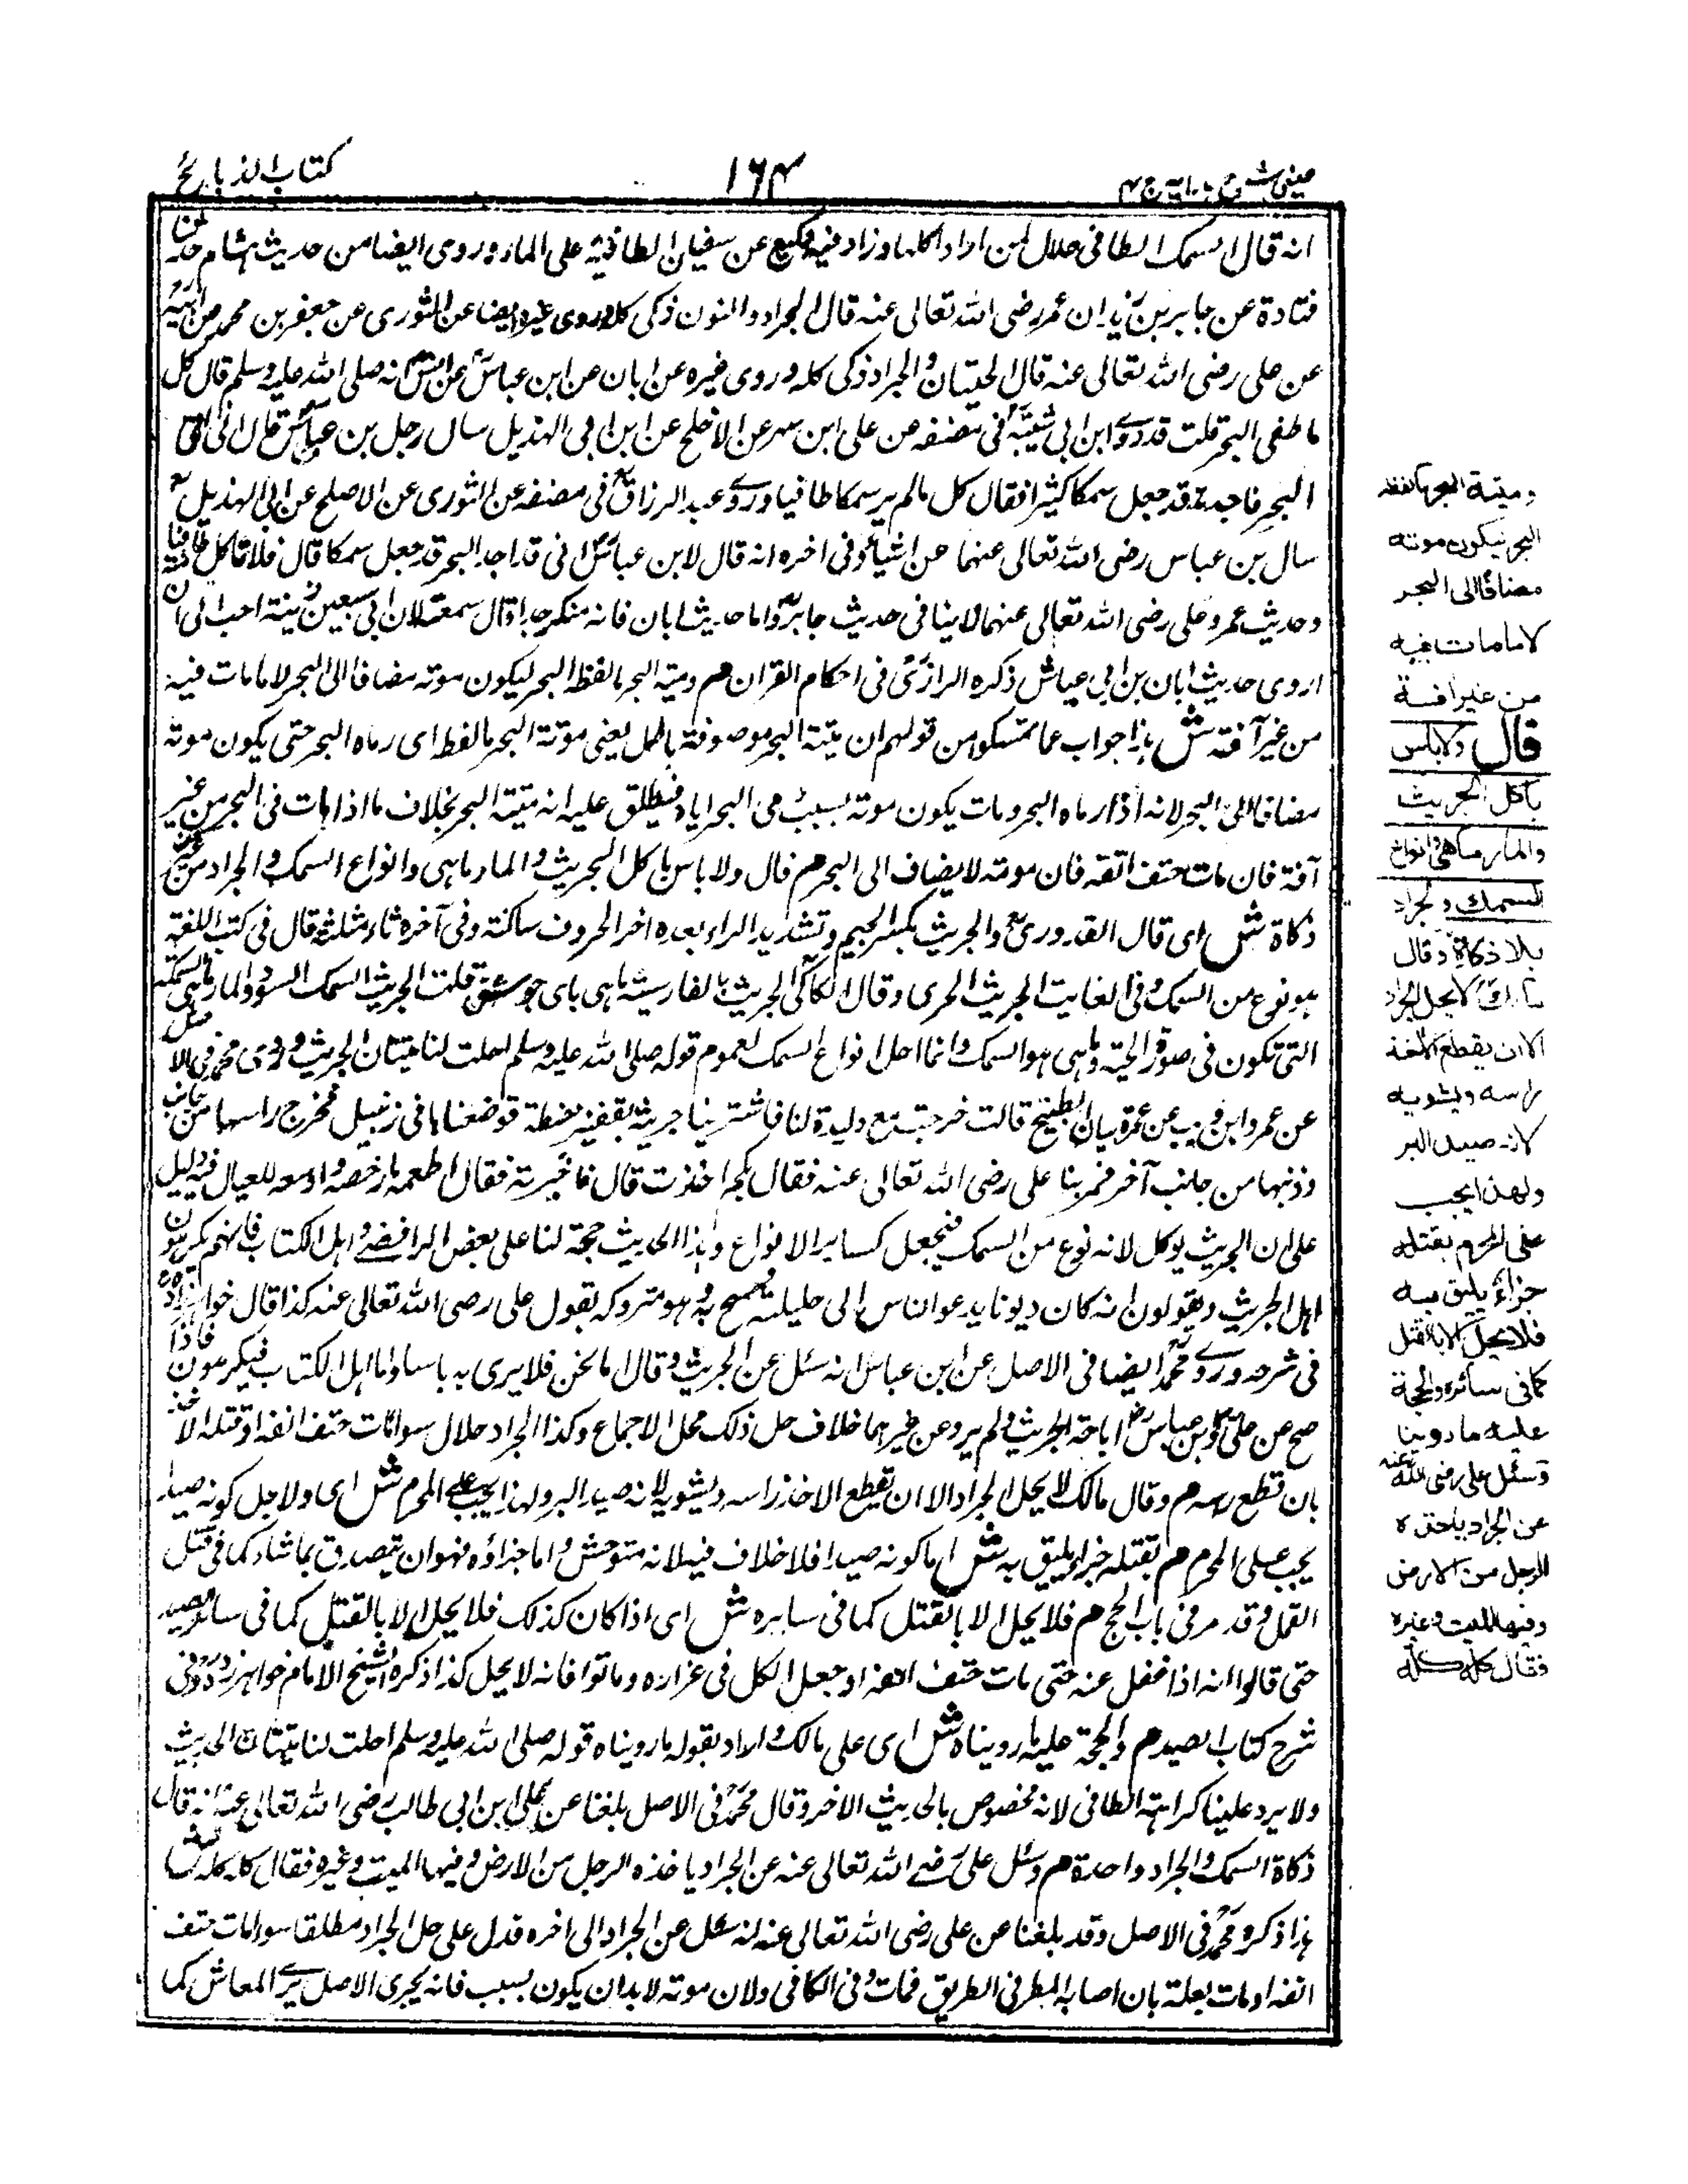 عینی شرح ہدایہ ج ۴
۱۶۴
کتاب الذبایح
انه قال السمک الطافی حلال لمن اراد اکلها وزاد فیه وکیع عن سفیان الطافیة علی الماء وروی ایضا من حدیث هشام
قتادة عن جابر بن زید ان عمر رضی الله تعالی عنه قال الجراد والنون ذکی کله وروی غیره ایضا عن الثوری عن جعفر بن محمد عن ابیه
عن علی رضی الله تعالی عنه قال الحیتان والجراد ذکی کله وروی غیره عن ابان عن ابن عباس عن انس انه صلی الله علیه وسلم قال کل
ما طفی البحر قلت قد روی ابن ابی شیبة فی مصنفه عن علی ابن مسهر عن الاجلح عن ابن ابی الهذیل سال رجل بن عباس قال انی اتی
البحر فاجده قد جعل سمکا کثیرا فقال کل مالم یر سمکا طافیا وروی عبد الرزاق فی مصنفه عن الثوری عن الاصلح عن ابی الهذیل
سال بن عباس رضی الله تعالی عنهما عن اشیاء وفی اخره انه قال لابن عباس انی قد اجد البحر قد جعل سمکا قال فلا تاکل طافیا
وحدیث عمر وعلی رضی الله تعالی عنهما لا ینافی حدیث جابر واما حدیث ابان فانه منکر جدا قال سمعت لان ابی سبعین زنیة احب الی ان
اروی حدیث ابان بن ابی عیاش ذکره الرازی فی احکام القران م ومیتة البحر ما لفظه البحر لیکون موته مضافا الی البحر لا ما مات فیه
من غیر آفة ش هذا جواب عما تمسکو من قولهم ان میتة البحر موصوفة بالحل یعنی موتة البحر ما لفظ ای رماه البحر حتی یکون موته
مضافا الی البحر لانه اذا رماه البحر ومات یکون موته بسبب رمی البحر ایاه فیطلق علیه انه میتة البحر بخلاف ما اذا مات فی البحر من غیر
آفة فان مات حتف انفه فان موته لا یضاف الی البحر م قال ولا باس باکل الجریث والمارماهی وانواع السمک والجراد من غیر
ذکاة ش ای قال القدوری والجریث بکسر الجیم وتشدید الراء بعده اخر الحروف ساکنة وفی آخره ثاء مثلثة قال فی کتب اللغة
هو نوع من السمک وفی الغایت الجریث الجری وقال الکاکی الجریث بالفارسیة ماهی قلت الجریث السمک السود والمارماهی السمکة
التی تکون فی صورة الحیة وماهی هو السمک وانما احل انواع السمک لعموم قوله صلی الله علیه وسلم احلت لنا میتتان الجریث وروی محمد فی الاصل
عن عمرو ابن وهب عن عمرة بیان الطبیخ قالت خرجت مع ولیدة لنا فاشترینا جریثة بقفیز حنطة فوضعناها فی زنبیل فخرج راسها من جانب
وذنبها من جانب آخر فمر بنا علی رضی الله تعالی عنه فقال بکم اخذت قال فاخبرته فقال اطعمه ما رخصه واوسعه للعیال فیه دلیل
علی ان الجریث یوکل لانه نوع من السمک فیجعل کسایر الانواع وهذا الحدیث حجة لنا علی بعض الرافضة واهل الکتاب فانهم یکرهون
اهل الجریث ویقولون انه کان دیوثا یدعو الناس الی حلیلته فمسخ به وهو متروکه بقول علی رضی الله تعالی عنه کذا قال خواهرزاده
فی شرحه وروی محمد ایضا فی الاصل عن ابن عباس انه سئل عن الجریث وقال اما نحن فلا یری به باسا واما اهل الکتاب فیکرهون فاذا
صح عن علی وابن عباس اباحة الجریث ولم یرو عن غیرهما خلاف حل ذلک محل الاجماع وکذا الجراد حلال سواء مات حتف انفه او قتله الاخذ
بان قطع رسه م وقال مالک لا یحل الجراد الا ان یقطع الاخذ راسه ویشویه لانه صید البر ولهذا یجب علی المحرم ش ای ولاجل کونه صیدا
یجب علی المحرم م بقتله جزاء یلیق به ش اما کونه صیدا فلا خلاف فیه لانه متوحش واما جزاؤه فهو ان یتصدق بما شاء کما فی قتل
القمل وقد مر فی باب الحج م فلا یحل الا بالقتل کما فی سایره ش ای اذا کان کذلک فلا یحل الا بالقتل کما فی سائر الصید
حتی قالوا انه اذا غفل عنه حتی مات حتف انفه او جعل الکل فی غراره وماتوا فانه لا یحل کذا ذکره الشیخ الامام خواهرزاده فی
شرح کتاب الصید م والحجة علیه ما رویناه ش ای علی مالک والمراد بقوله ما رویناه قوله صلی الله علیه وسلم احلت لنا میتتان الحدیث
ولا یرد علینا کراهة الطافی لانه مخصوص بالحدیث الاخر وقال محمد فی الاصل بلغنا عن علی ابن ابی طالب رضی الله تعالی عنه انه قال
ذکاة السمک والجراد واحدة م وسئل علی رضی الله تعالی عنه عن الجراد یاخذه الرجل من الارض وفیها المیت وغیره فقال کله کله ش
هذا ذکره محمد فی الاصل وقد بلغنا عن علی رضی الله تعالی عنه انه سئل عن الجراد الی اخره فدل علی حل الجراد مطلقا سواء مات حتف
انفه او مات بعلة بان اصابه المطر فی الطریق فمات وفی الکافی ولان موته لابد ان یکون بسبب فانه بحری الاصل بری المعاش کما
ومیتة البحر ما لفظه
البحر لیکون موته
مضافا الی البحر
لا ما مات فیه
من غیر افة
قال ولا باس
باکل الجریث
والمارماهی وانواع
السمک والجراد
بلا ذکاة وقال
مالک لا یحل الجراد
الا ان یقطع الاخذ
راسه ویشویه
لانه صید البر
ولهذا یجب
علی المحرم بقتله
جزاء یلیق به
فلا یحل الا بالقتل
کما فی سائره والحجة
علیه ما روینا
وسئل علی رضی الله عنه
عن الجراد یاخذه
الرجل من الارض
وفیها المیت وغیره
فقال کله کله